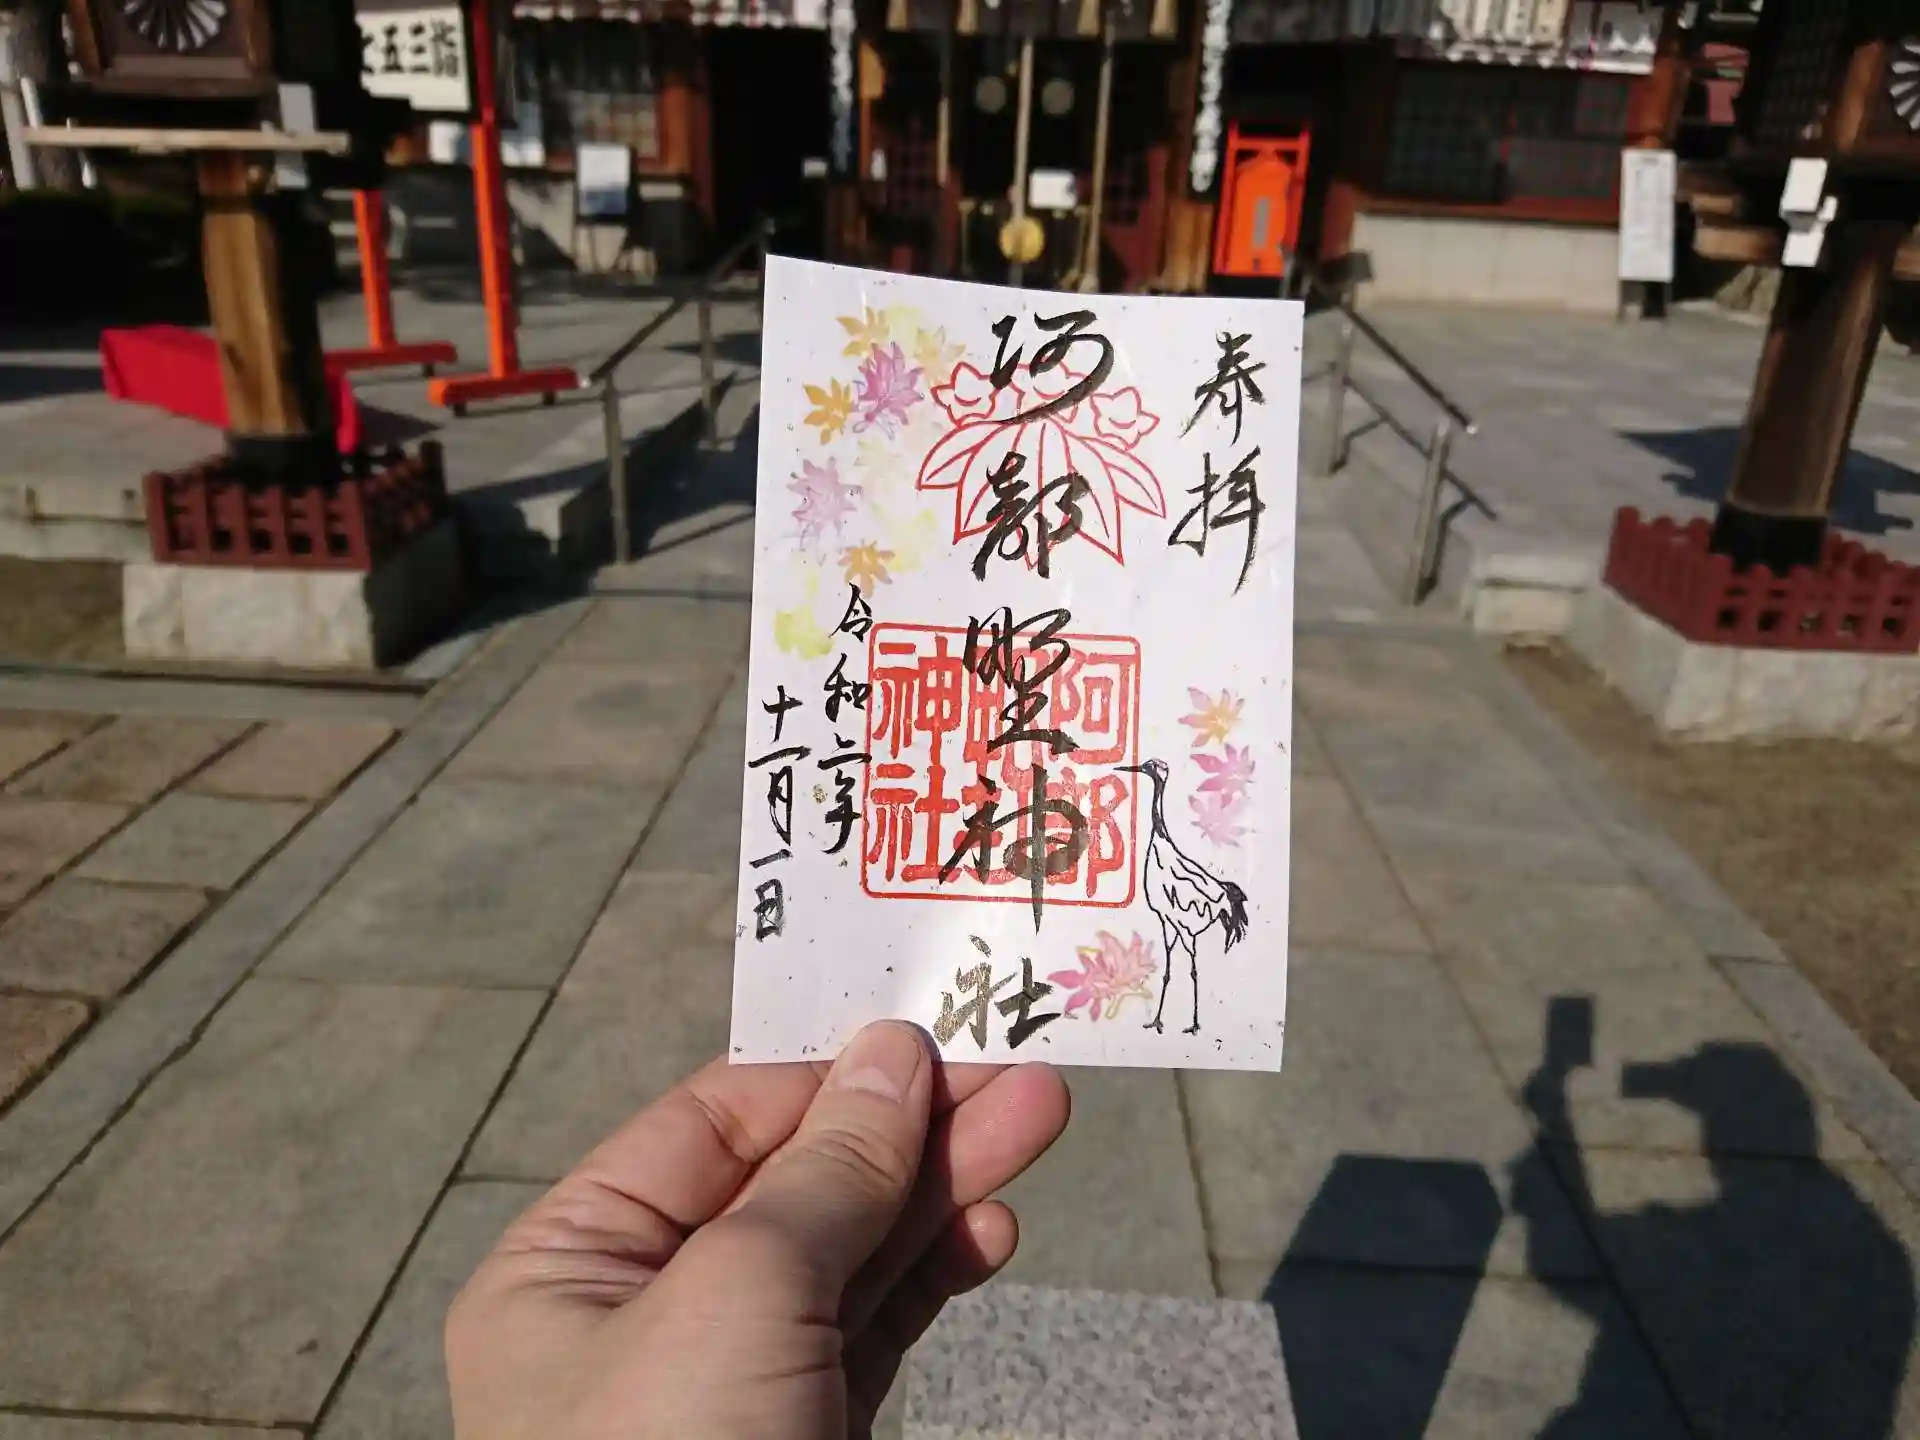 奉拝
阿部野神社
令和二年
十一月一日
阿部
野
神社
五三詣